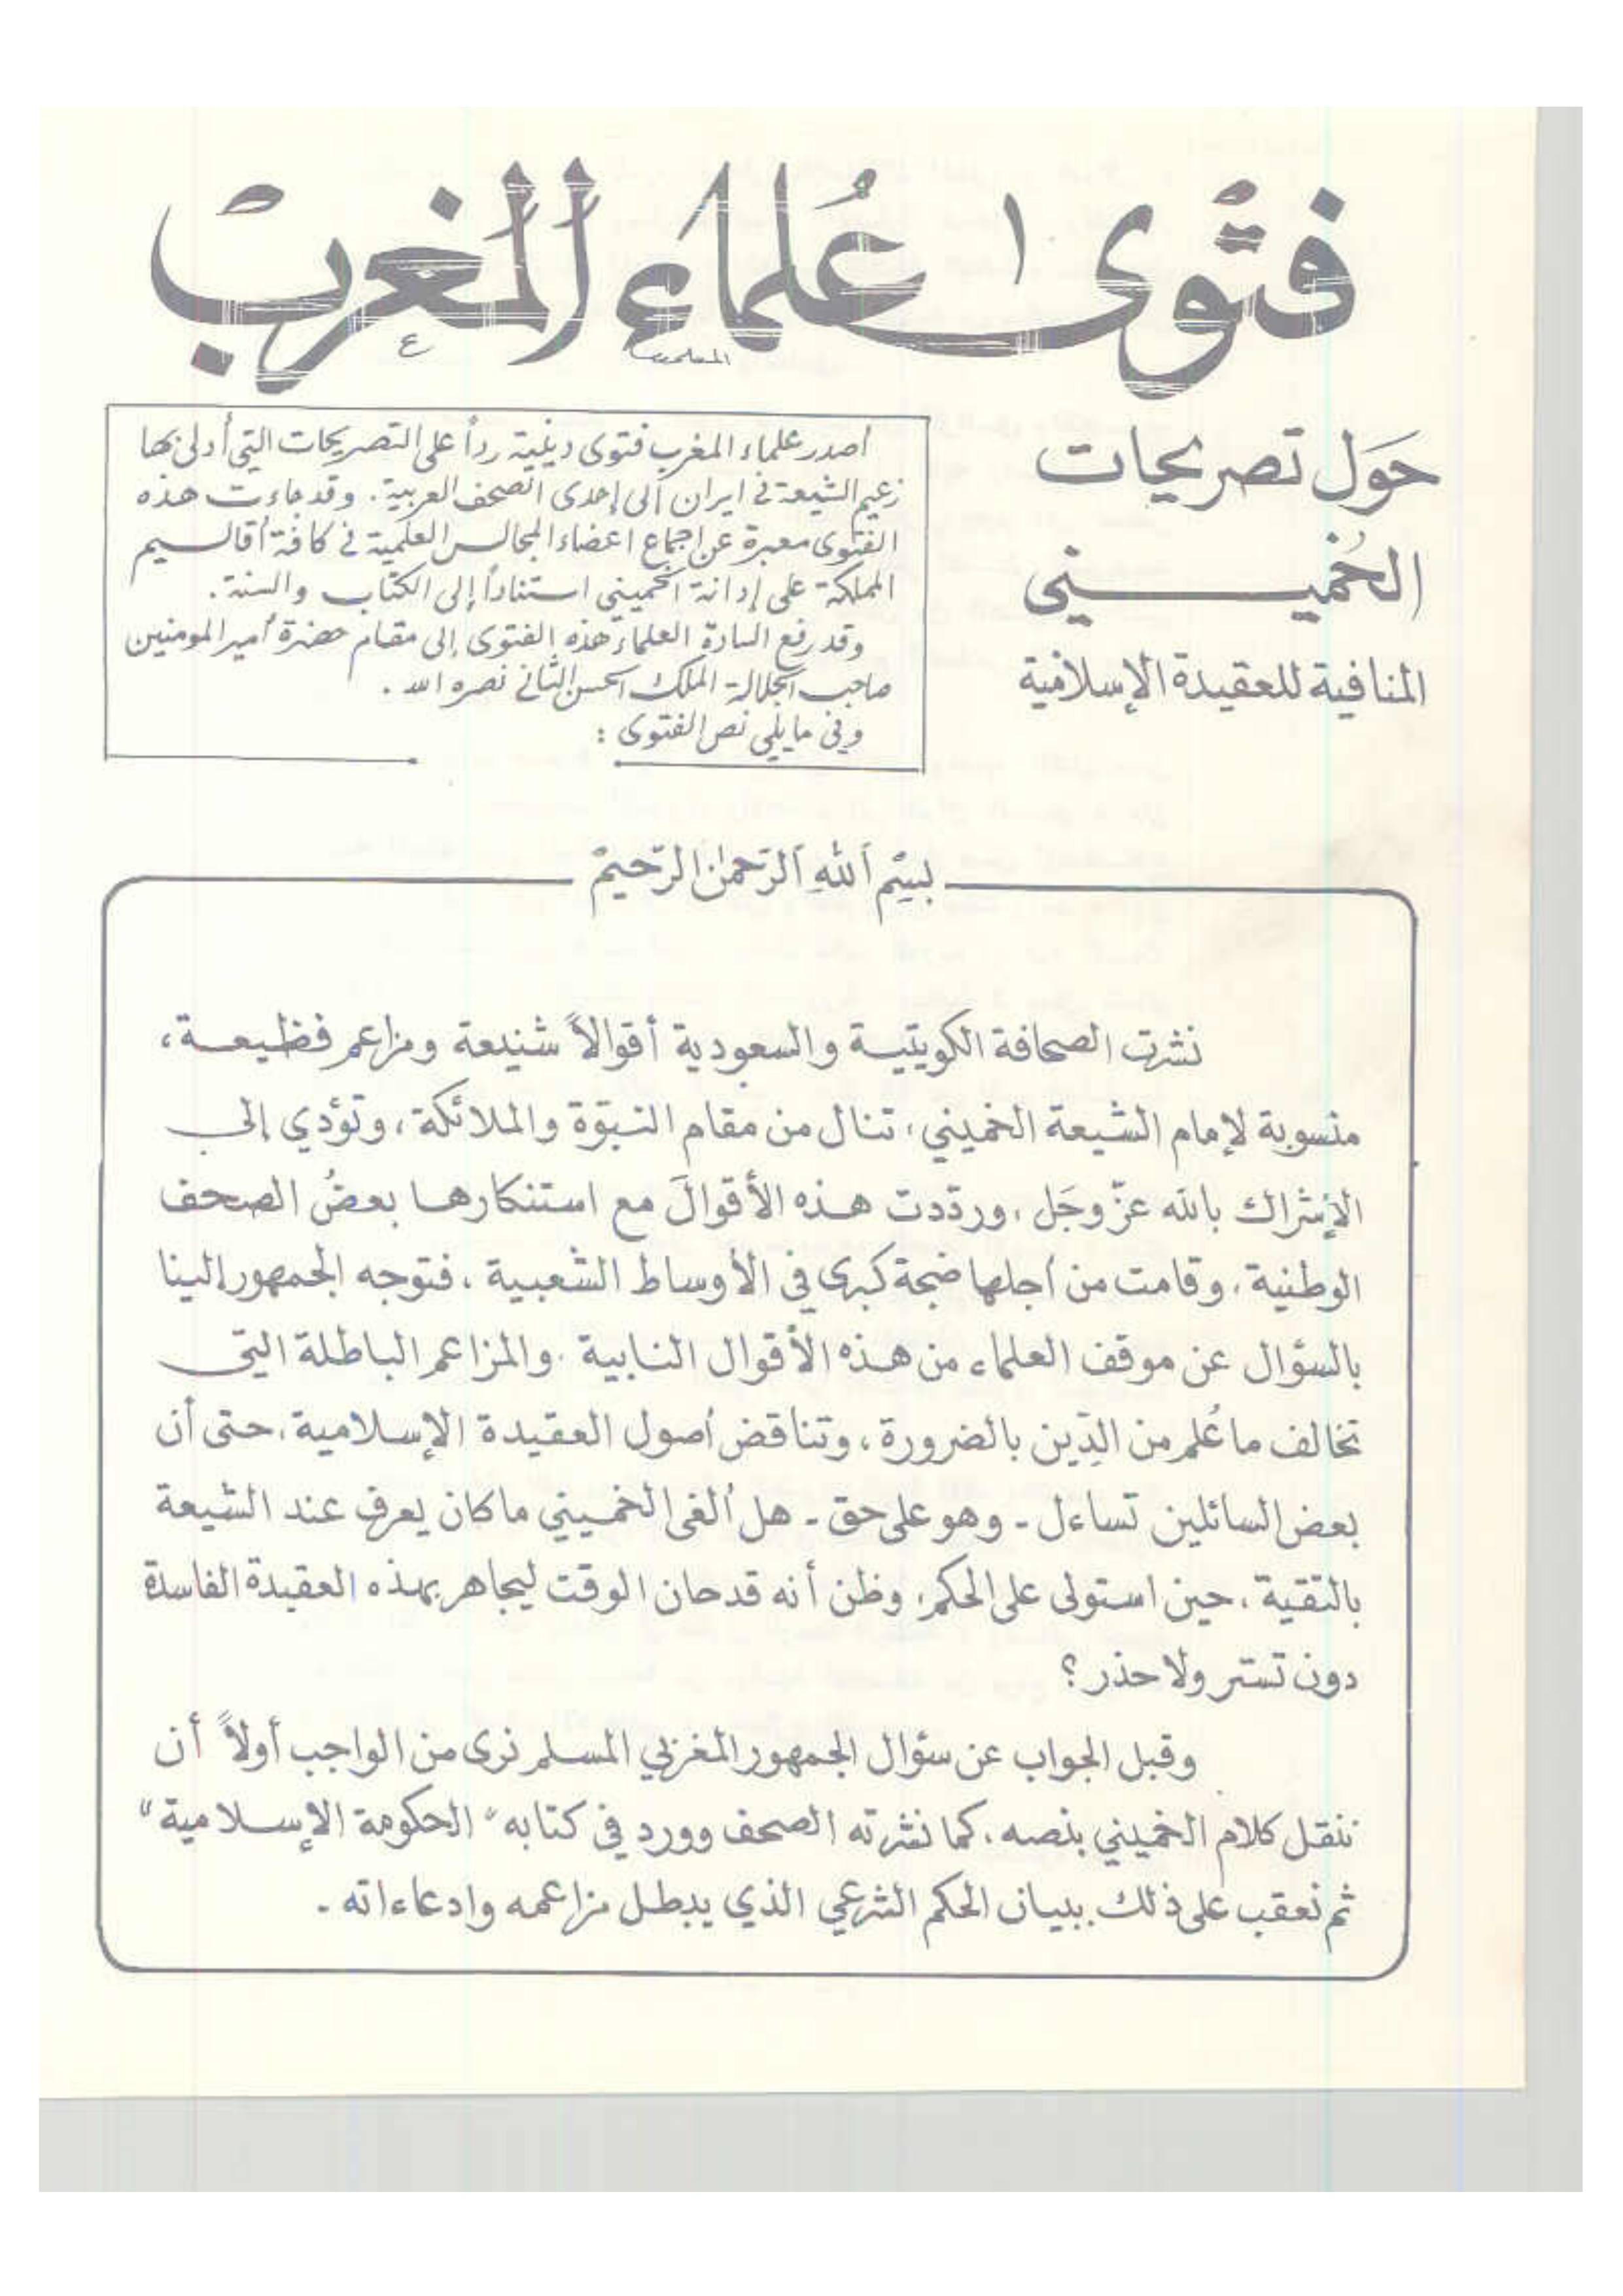 فتوى علماء المغرب
حَول تصريحات
الخُميـــني
المنافية للعقيدة الإسلامية
أصدر علماء المغرب فتوى دينية رداً على التصريحات التي أدلى بها
زعيم الشيعة في ايران الى إحدى الصحف العربية. وقد جاءت هذه
الفتوى معبرة عن إجماع اعضاء المجالس العلمية في كافة أقاليم
المملكة على إدانة الخميني استناداً إلى الكتاب والسنة.
وقد رفع السادة العلماء هذه الفتوى إلى مقام حضرة أمير المومنين
صاحب الجلالة الملك الحسن الثاني نصره الله.
وفي ما يلي نص الفتوى :
بِسْمِ اللهِ الرّحمٰن الرّحيم
نشرت الصحافة الكويتية والسعودية أقوالاً شنيعة ومزاعم فظيعة،
منسوبة لإمام الشيعة الخميني، تنال من مقام النبوّة والملائكة، وتؤدي إلى
الإشراك بالله عزّ وجَل، وردّدت هذه الأقوالَ مع استنكارها بعضُ الصحف
الوطنية، وقامت من أجلها ضجة كبرى في الأوساط الشعبية، فتوجه الجمهور إلينا
بالسؤال عن موقف العلماء من هذه الأقوال النابية. والمزاعم الباطلة التي
تخالف ما عُلم من الدّين بالضرورة، وتناقض أصول العقيدة الإسلامية، حتى أن
بعض السائلين تساءل - وهو على حق - هل ألغى الخميني ما كان يعرف عند الشيعة
بالتقية، حين استولى على الحكم، وظن أنه قد حان الوقت ليجاهر بهذه العقيدة الفاسدة
دون تستر ولا حذر؟
وقبل الجواب عن سؤال الجمهور المغربي المسلم نرى من الواجب أولاً أن
ننقل كلام الخميني بنصه، كما نشرته الصحف وورد في كتابه "الحكومة الإسلامية"
ثم نعقب على ذلك ببيان الحكم الشرعي الذي يبطل مزاعمه وادعاءاته -